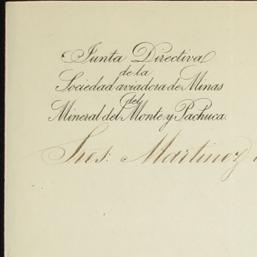 Junta Directiva
de la
Sociedad aviadora de Minas
del
Mineral del Monte y Pachuca.
Sres. Martinez